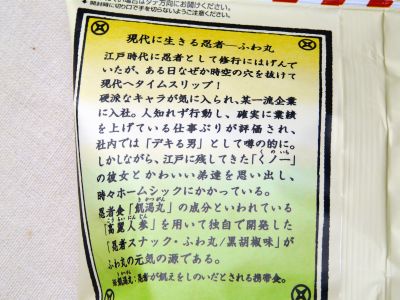 タテ方向にお開けください。
開封時に切り口で手を切らないようご注意ください。
現代に生きる忍者―ふわ丸
江戸時代に忍者として修行にはげんで
いたが、ある日なぜか時空の穴を抜けて
現代へタイムスリップ!
硬派なキャラが気に入られ、某一流企業
に入社。人知れず行動し、確実に業績
を上げている仕事ぶりが評価され、
社内では「デキる男」として噂の的に。
しかしながら、江戸に残してきた「くノ一」
の彼女とかわいい弟達を思い出し、
時々ホームシックにかかっている。
忍者食「飢渇丸」の成分といわれている
「高麗人参」を用いて独自で開発した
「忍者スナック・ふわ丸/黒胡椒味」が
ふわ丸の元気の源である。
※飢渇丸:忍者が飢えをしのいだとされる携帯食。